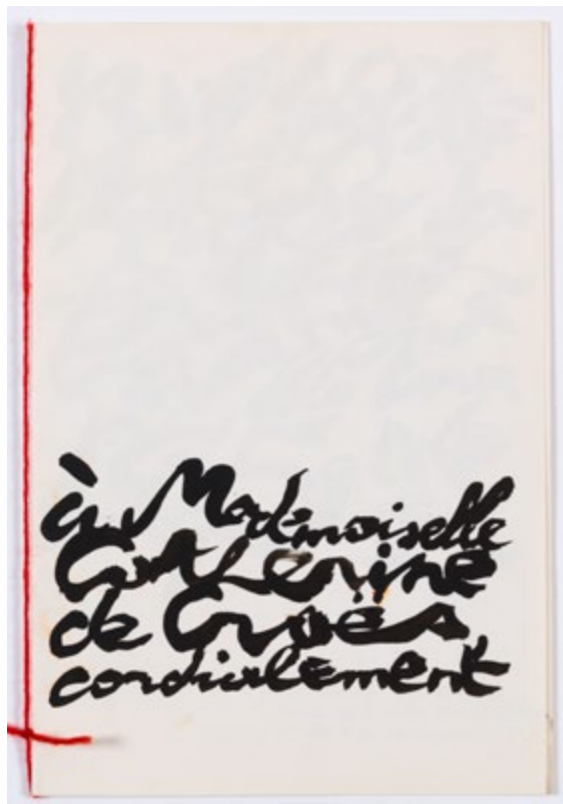 à Mademoiselle
Catherine
de Croës
cordialement